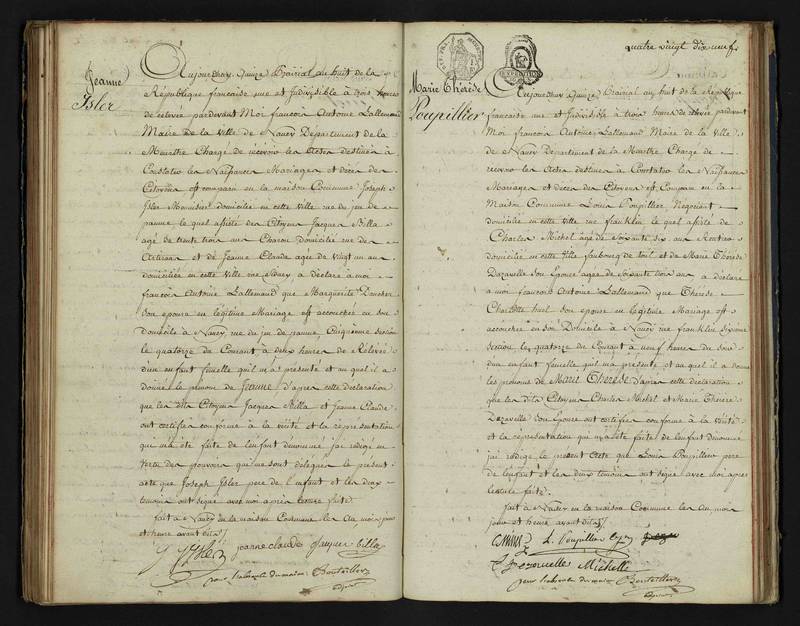 Jeanne
Isler
Aujourdhuy Quinze Prairial an huit de la
République francaise une et Indivisible à trois heures
de relevée pardevant Moi francois Antoine Lallemand
Maire de la Ville de Nancy Departement de la
Meurthe Chargé de recevoir les Actes destinés à
Constater les Naissances Mariages et décès des
Citoyens est comparu en la maison Commune Joseph
Isler Menuisier domicilié en cette ville rue du jeu de
paume lequel assisté des Citoyens Jacques Billa
agé de trente trois ans Charon Domicilié rue des
Artisans et de Jeanne Claude agée de vingt un ans
domiciliée en cette ville rue Nancy, a déclaré à moi
francois Antoine Lallemand que Marguerite
son epouse en legitime Mariage est accouchée en son
domicile à Nancy, rue du jeu de paume, Cinquième section
le quatorze du Courant à deux heures de Relevée
d'un enfant femelle qu'il m'a présenté et au quel il a
donné le prenom de Jeanne d'apres cette déclaration
que les dits Citoyens Jacques Billa et Jeanne Claude
ont certifiée conforme à la vérité et la représentation
qui m'a été faite de l'enfant dénommé j'ai rédigé en
vertu des pouvoirs qui me sont délégués le présent
acte que Joseph Isler pere de l'enfant et les deux
temoins ont signé avec moi après lecture faite
fait à Nancy en la maison Commune les An mois jour
et heure avant dits
J Isler jeanne claude Jacques billa
pour l'absence du maire Bouteiller
adjoint
quatre vingt dix neuf
Marie Thérèse
Poupillier
Aujourdhuy Quinze Prairial an huit de la République
francaise une et Indivisible à trois heures de relevée pardevant
Moi francois Antoine Lallemand Maire de la Ville
de Nancy Departement de la Meurthe Chargé de
recevoir les Actes destinés à Constater les Naissances
Mariages et décès des Citoyens est Comparu en la
Maison Commune Louis Poupillier Négociant
domicilié en cette ville rue franklin lequel assisté de
Charles Michel agé de Soixante six ans Rentier
domicilié en cette Ville faubourg de toul et de Marie Thérèse
Dazavelle son Epouse agée de soixante trois ans a déclaré
à moi francois Antoine Lallemand que Thérèse
Charlotte huel son epouse en legitime Mariage est
accouchée en son Domicile à Nancy rue franklin sixieme
section le quatorze du Courant à neuf heures du soir
d'un enfant femelle qu'il m'a présenté et au quel il a donné
les prenoms de Marie Thérèse d'apres cette déclaration
que les dits Citoyens Charles Michel et Marie Thérèse
Dazavelle son Epouse ont certifiée conforme à la Vérité
et la représentation qui m'a été faite de l'enfant dénommé
j'ai rédigé le présent Acte que Louis Poupillier pere
de l'enfant et les deux temoins ont signé avec moi après
lecture faite
fait à Nancy en la maison Commune les An, mois
jour et heure avant dits
L. Poupillier
Michelle
pour l'absence du maire Bouteiller
adjoint